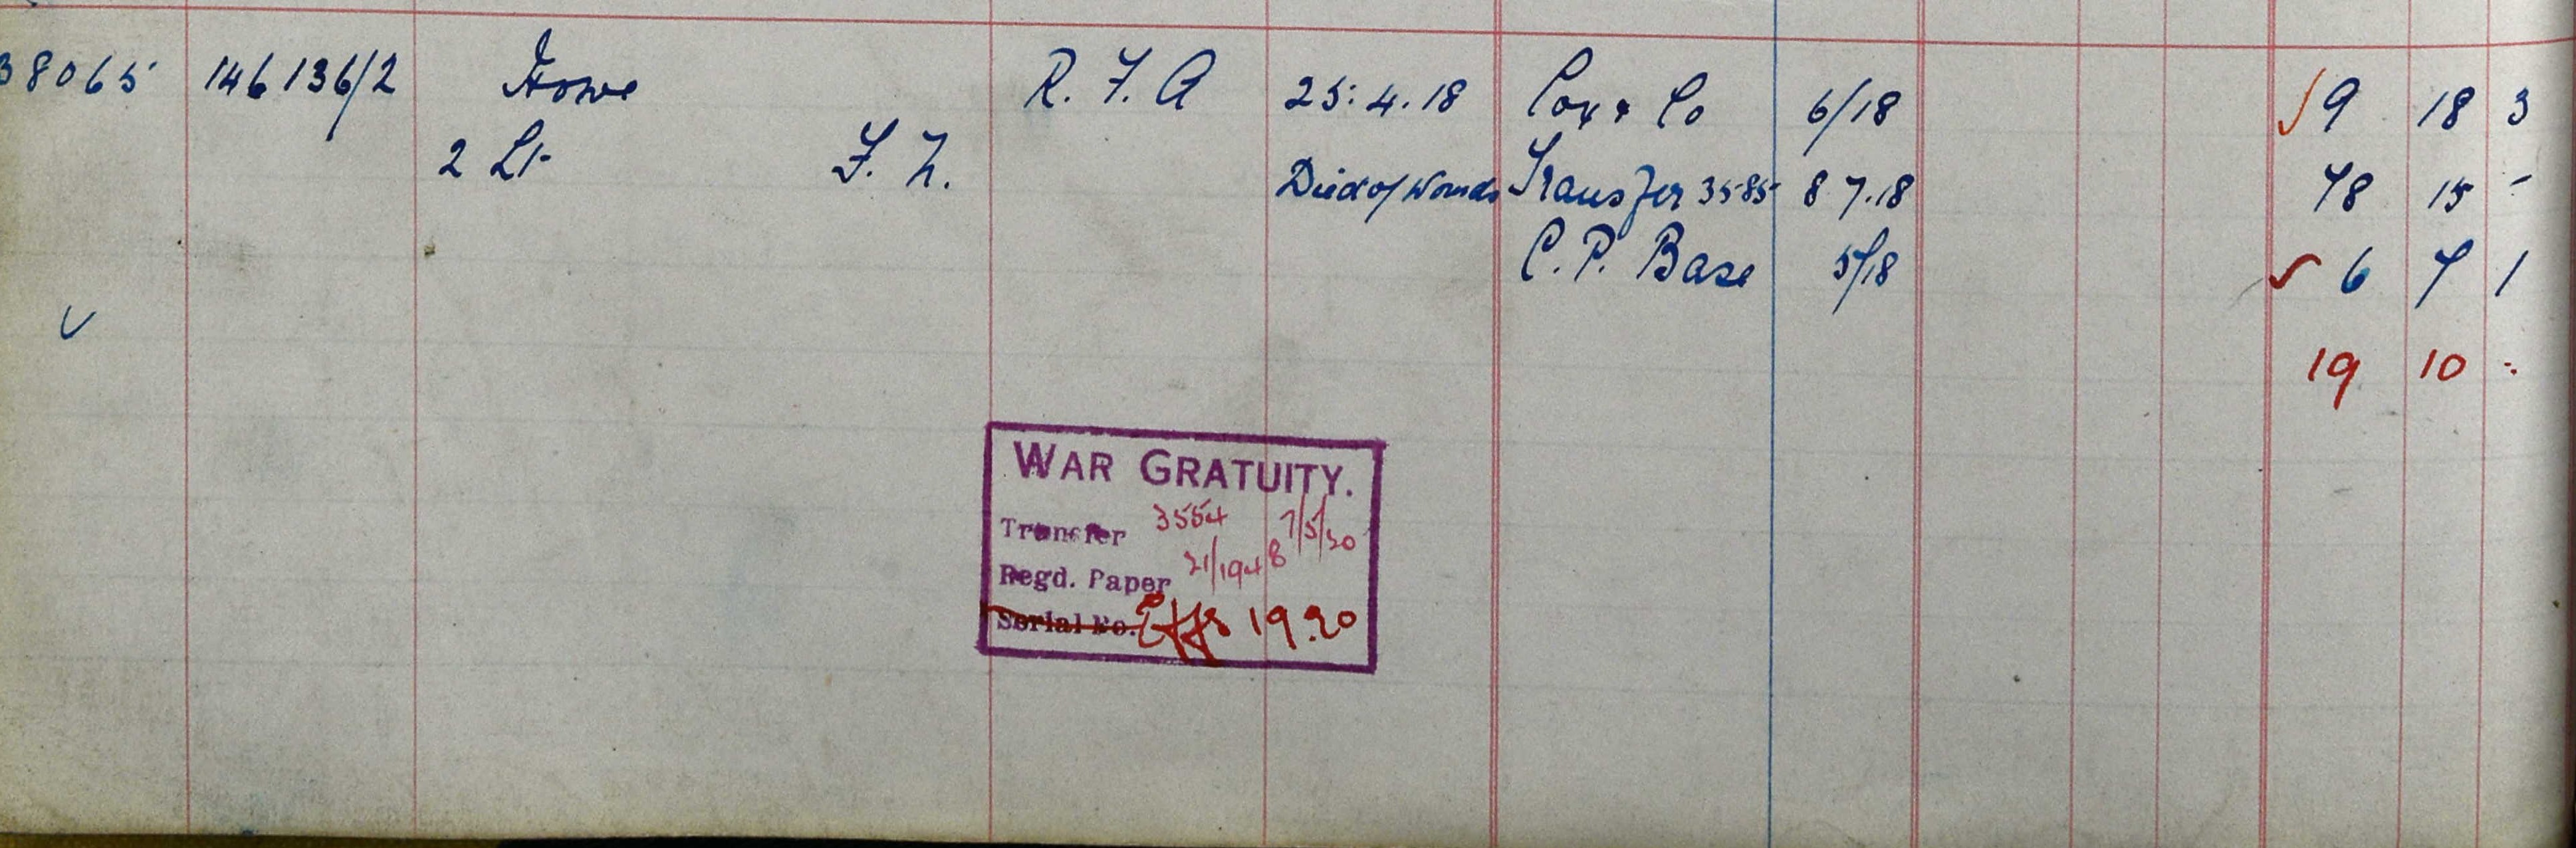 38065 146136/2 Howe R. F. A 25.4.18 Cox & Co 6/18 9 18 3
2 Lt F. H. Died of Wounds Transfer 3585 8 7.18 78 15 -
C. P. Base 5/18 6 7 1
19 10 -
WAR GRATUITY.
Transfer 3554 7/5/20
Regd. Paper 21/1948
Serial No. Effs 19.20